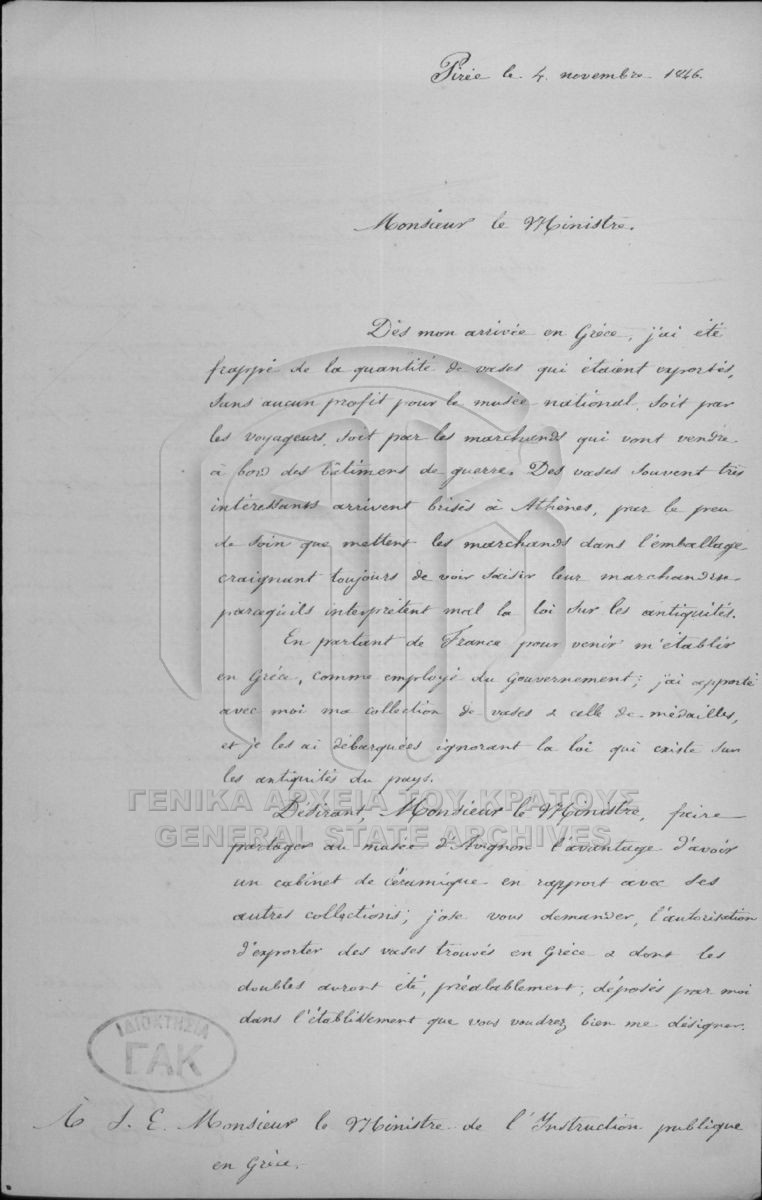 Pirée le 4 novembre 1846.
Monsieur le Ministre.
Dès mon arrivée en Grèce, j'ai été
frappé de la quantité de vases qui étaient exportés,
sans aucun profit pour le musée national, soit par
les voyageurs, soit par les marchands qui vont vendre
à bord des bâtimens de guerre. Des vases souvent très
intéressants arrivent brisés à Athènes, par le peu
de soin que mettent les marchands dans l'emballage
craignant toujours de voir saisir leur marchandise
paraqu'ils interprètent mal la loi sur les antiquités.
En partant de France pour venir m'établir
en Grèce, comme employé du gouvernement; j'ai apporté
avec moi ma collection de vases & celle de médailles,
et je les ai débarquées ignorant la loi qui existe sur
les antiquités du pays.
Désirant, Monsieur le Ministre, faire
partager au musée d'Avignon l'avantage d'avoir
un cabinet de céramique en rapport avec ses
autres collections; j'ose vous demander, l'autorisation
d'exporter des vases trouvés en Grèce & dont les
doubles auront été, préalablement, déposés par moi
dans l'établissement que vous voudrez bien me désigner.
A S. E. Monsieur le Ministre de l'Instruction publique
en Grèce.
ΓΕΝΙΚΑ ΑΡΧΕΙΑ ΤΟΥ ΚΡΑΤΟΥΣ
GENERAL STATE ARCHIVES
ΙΔΙΟΚΤΗΣΙΑ
ΓΑΚ